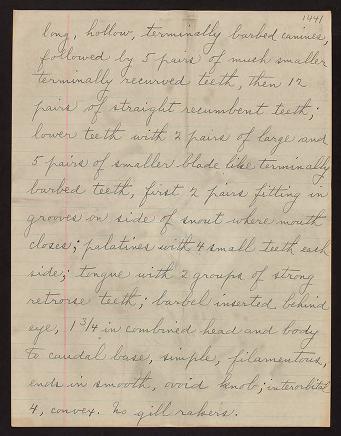 1441
long, hollow, terminally barbed canines,
followed by 5 pairs of much smaller
terminally recurved teeth, then 12
pairs of straight recumbent teeth;
lower teeth with 2 pairs of large and
5 pairs of smaller blade like terminally
barbed teeth, first 2 pairs fitting in
grooves on side of snout where mouth
closes; palatines with 4 small teeth each
side; tongue with 2 groups of strong
retrorse teeth; barbel inserted behind
eye, 1 3/4 in combined head and body
to caudal base, simple, filamentous,
ends in smooth, ovoid knob; interorbital
4, convex. No gill rakers.